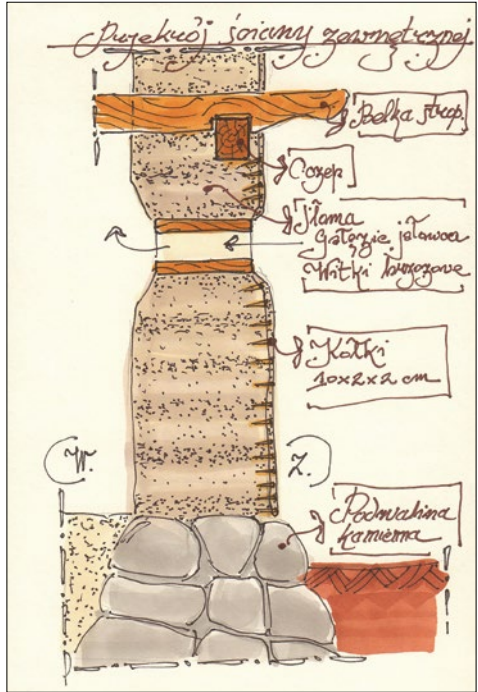 Przekrój ściany zewnętrznej
Belka strop.
Oczep
Słoma
gałęzie jałowca
Witki brzozowe
Kołki
10x2x2 cm
W.
Z.
Podwalina
kamienna